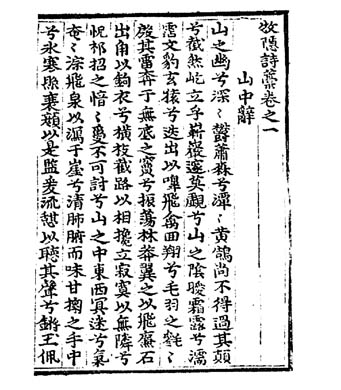 牧隱詩藁卷之一
山中辭
山之幽兮深〻欝蕭森兮潭〻黄鵠尚不得過其顛
兮截然屹立乎嶄巖邃莫覩兮山之陰曖霜露兮濡
霑文豹玄猿兮迭出以嘷飛禽回翔兮毛羽之毿〻
殷其雷奔于無底之竇兮振蕩林莽翼之以飛廉石
出角以鉤衣兮横枝截路以相攙立寂寞以無隣兮
怳祁招之愔〻憂不可討兮山之中東西冥迷兮氣
奄〻淙飛泉以瀉于崖兮清肺腑而味甘掬之手中
兮氷寒照衰顔以是監爰流憩以聽其聲兮鏘玉佩